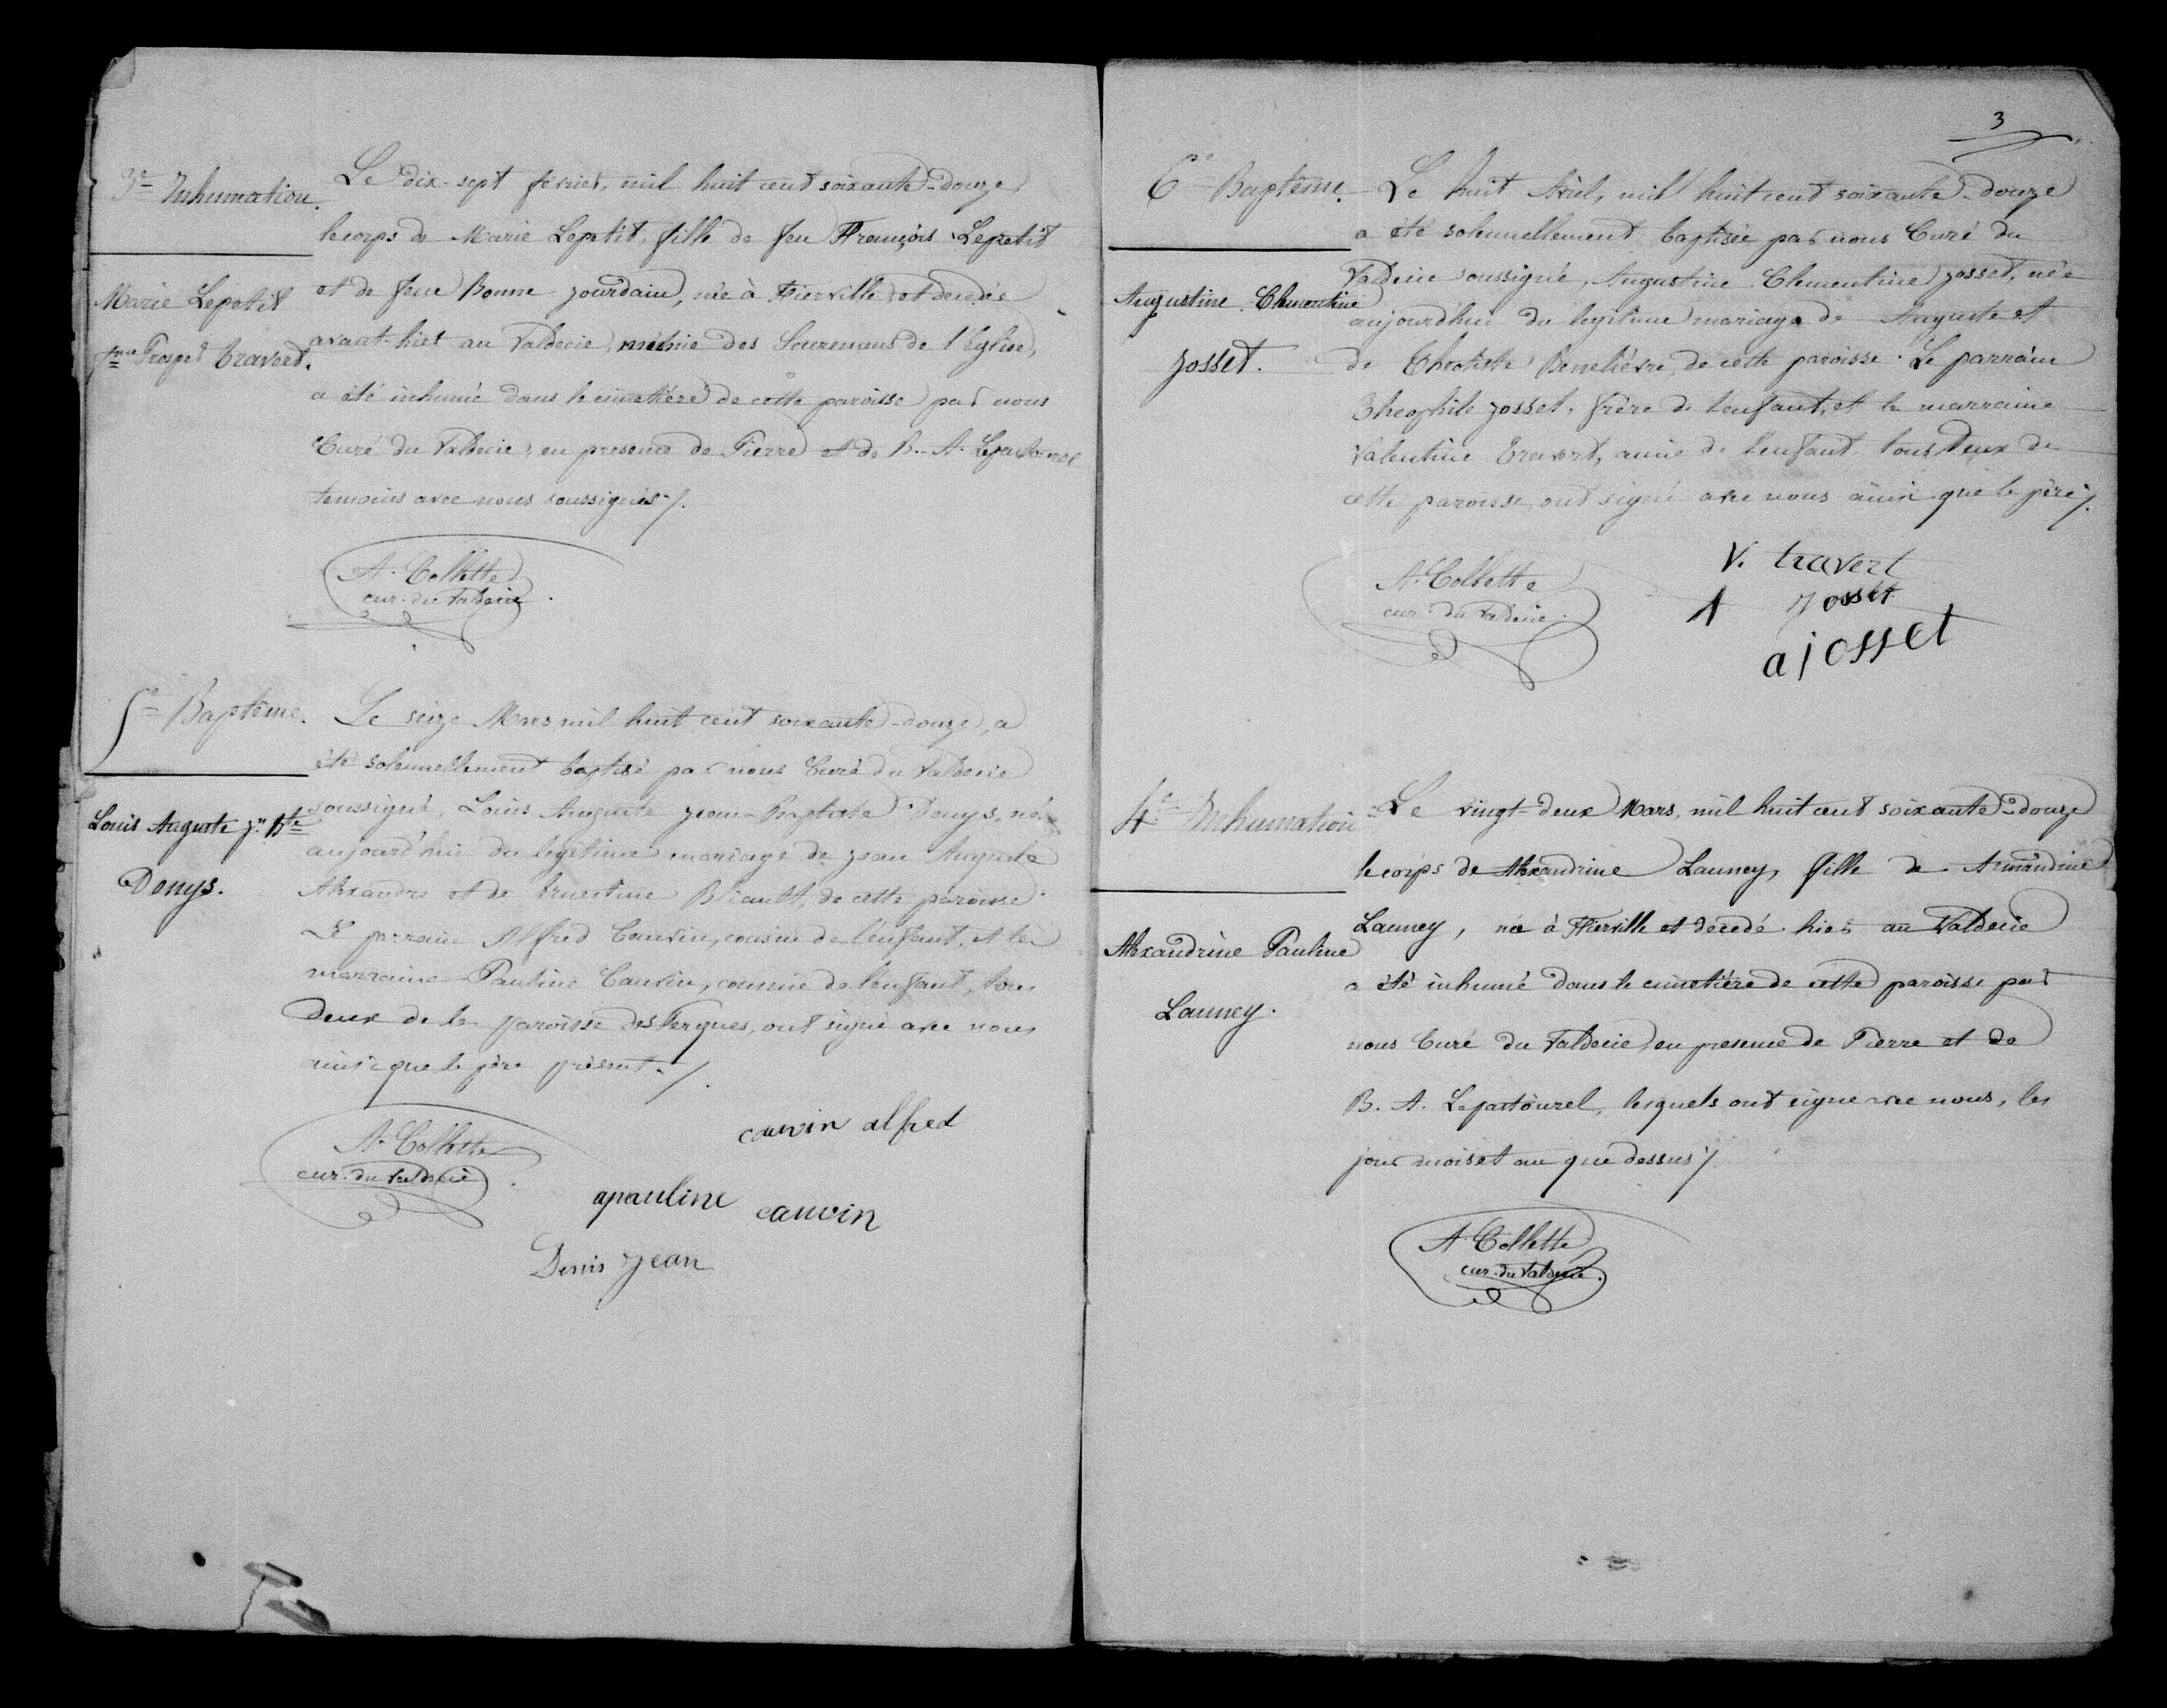 3e Inhumation.
Marie Lepetit
fme Prosper Travert.
Le dix-sept février, mil huit cent soixante-douze,
le corps de Marie Lepetit, fille de feu François Lepetit
et de feue Bonne Jourdain, née à Fierville et decedés
avant-hier au Valdecie, munie des Sacremens de l'Eglise,
a été inhumé dans le cimetière de cette paroisse par nous
Curé du Valdecie, en presence de Pierre et de B. A. Lepastourel
temoins avec nous soussignés ./.
A. Collette
cur. du Valdecie.
5e Baptême.
Louis Auguste Jn Bte
Denys.
Le seize Mars mil huit cent soixante-douze, a
été solennellement baptisé par nous Curé du Valdecie
soussigné, Louis Auguste Jean-Baptiste Denys, né
aujourd'hui du legitime mariage de Jean Auguste
Alexandre et de Ernestine Bliault, de cette paroisse.
Le parrain Alfred Cauvin, cousin de l'enfant, et la
marraine Pauline Cauvin, cousine de l'enfant, tous
deux de la paroisse des Perques, ont signé avec nous
ainsi que le père présent ./.
A. Collette
cur. du Valdecie.
cauvin alfred
apauline cauvin
Denis Jean
3
6e Baptême.
Augustine Clementine
Josset.
Le huit Avril, mil huit cent soixante-douze
a été solennellement baptisée par nous Curé du
Valdecie soussigné, Augustine Clementine Josset, née
aujourd'hui du legitime mariage de Auguste et
de Theotiste Bonelièvre, de cette paroisse. Le parrain
Theophile Josset, frère de l'enfant, et la marraine
Valentine Travert, amie de l'enfant, tous deux de
cette paroisse, ont signé avec nous ainsi que le père ./.
A. Collette
cur. du Valdecie.
V. travert
Josset
a josset
4e Inhumation
Alexandrine Pauline
Launey.
Le vingt-deux Mars, mil huit cent soixante-douze
le corps de Alexandrine Launey, fille de Armandine
Launey, née à Fierville et decedé hier au Valdecie
a été inhumé dans le cimetière de cette paroisse par
nous Curé du Valdecie, en presence de Pierre et de
B. A. Lepastourel, lesquels ont signé avec nous, les
jour mois et an que dessus ./.
A Collette
cur. du Valdecie.